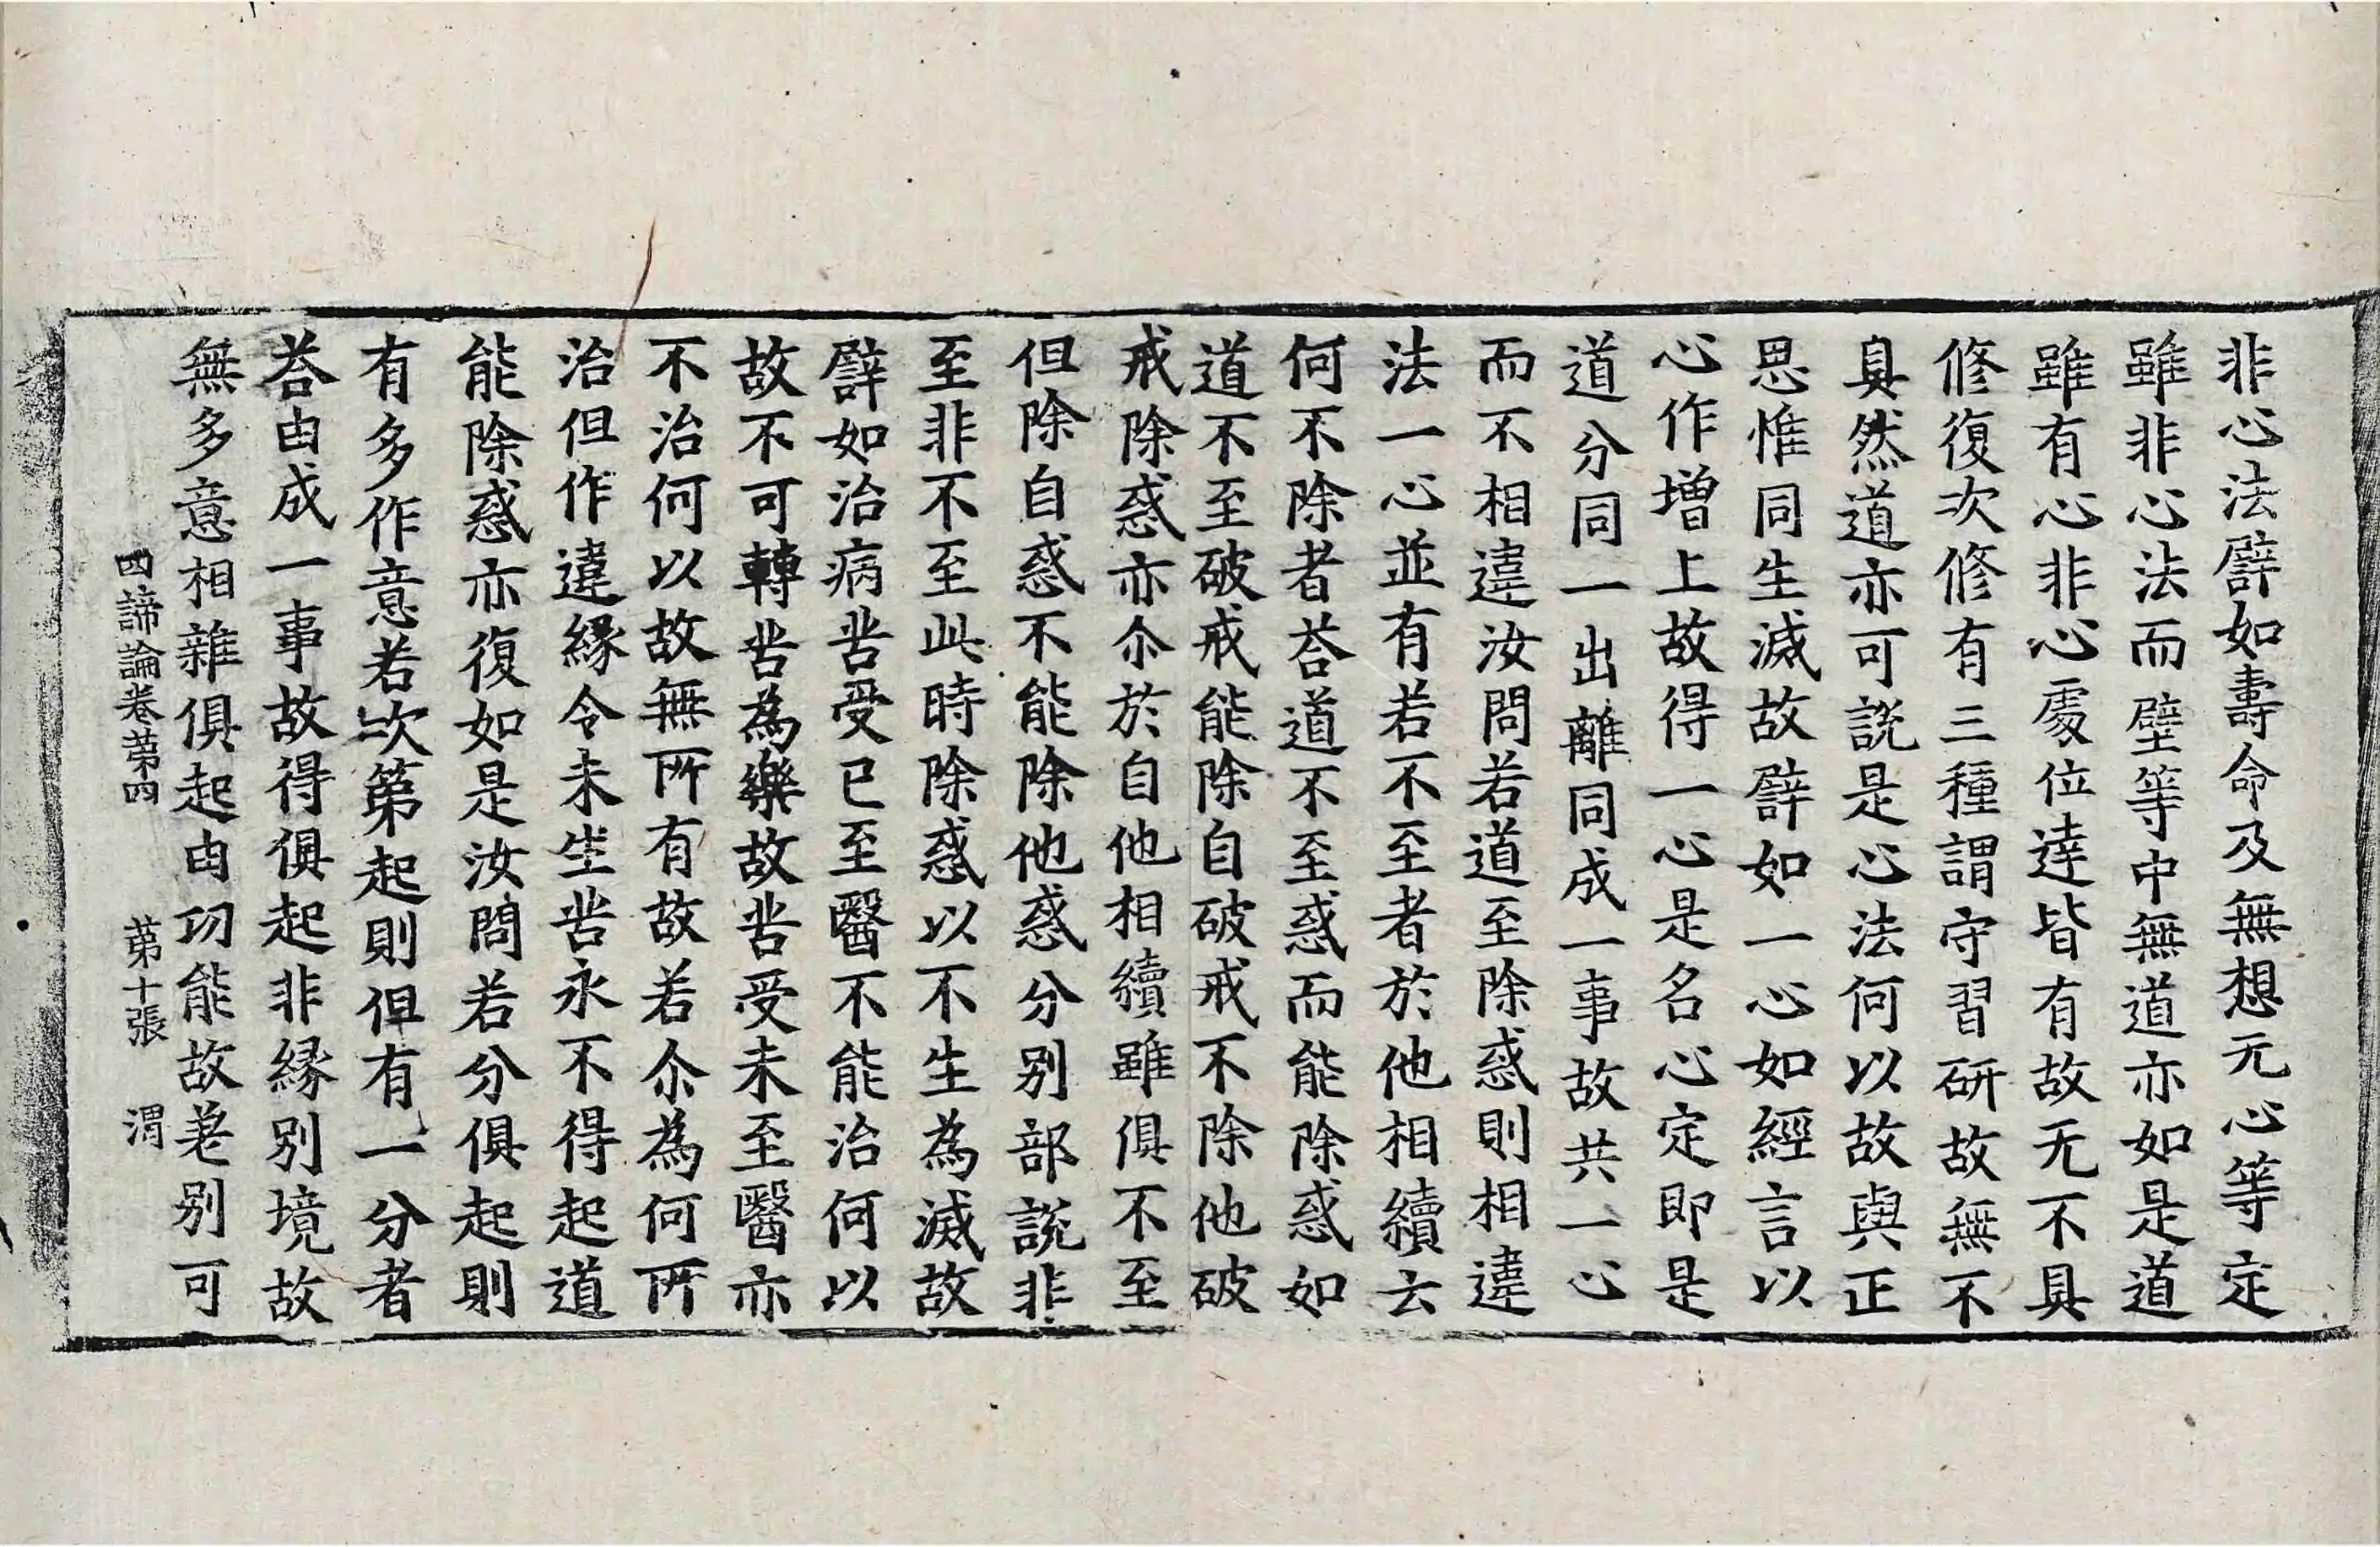 非心法譬如壽命及無想无心等定
雖非心法而壁等中無道亦如是道
雖有心非心處位達皆有故无不具
修復次修有三種謂守習研故無不
具然道亦可說是心法何以故與正
思惟同生滅故譬如一心如經言以
心作增上故得一心是名心定即是
道分同一出離同成一事故共一心
而不相違汝問若道至除惑則相違
法一心並有若不至者於他相續云
何不除者荅道不至惑而能除惑如
道不至破戒能除自破戒不除他破
戒除惑亦尒於自他相續雖俱不至
但除自惑不能除他惑分别部說非
至非不至此時除惑以不生為滅故
譬如治病苦受已至醫不能治何以
故不可轉苦為樂故苦受未至醫亦
不治何以故無所有故若尒為何所
治但作違緣令未生苦永不得起道
能除惑亦復如是汝問若分俱起則
有多作意若次第起則但有一分者
荅由成一事故得俱起非緣別境故
無多意相雜俱起由功能故差别可
四諦論卷第四 第十張 渭